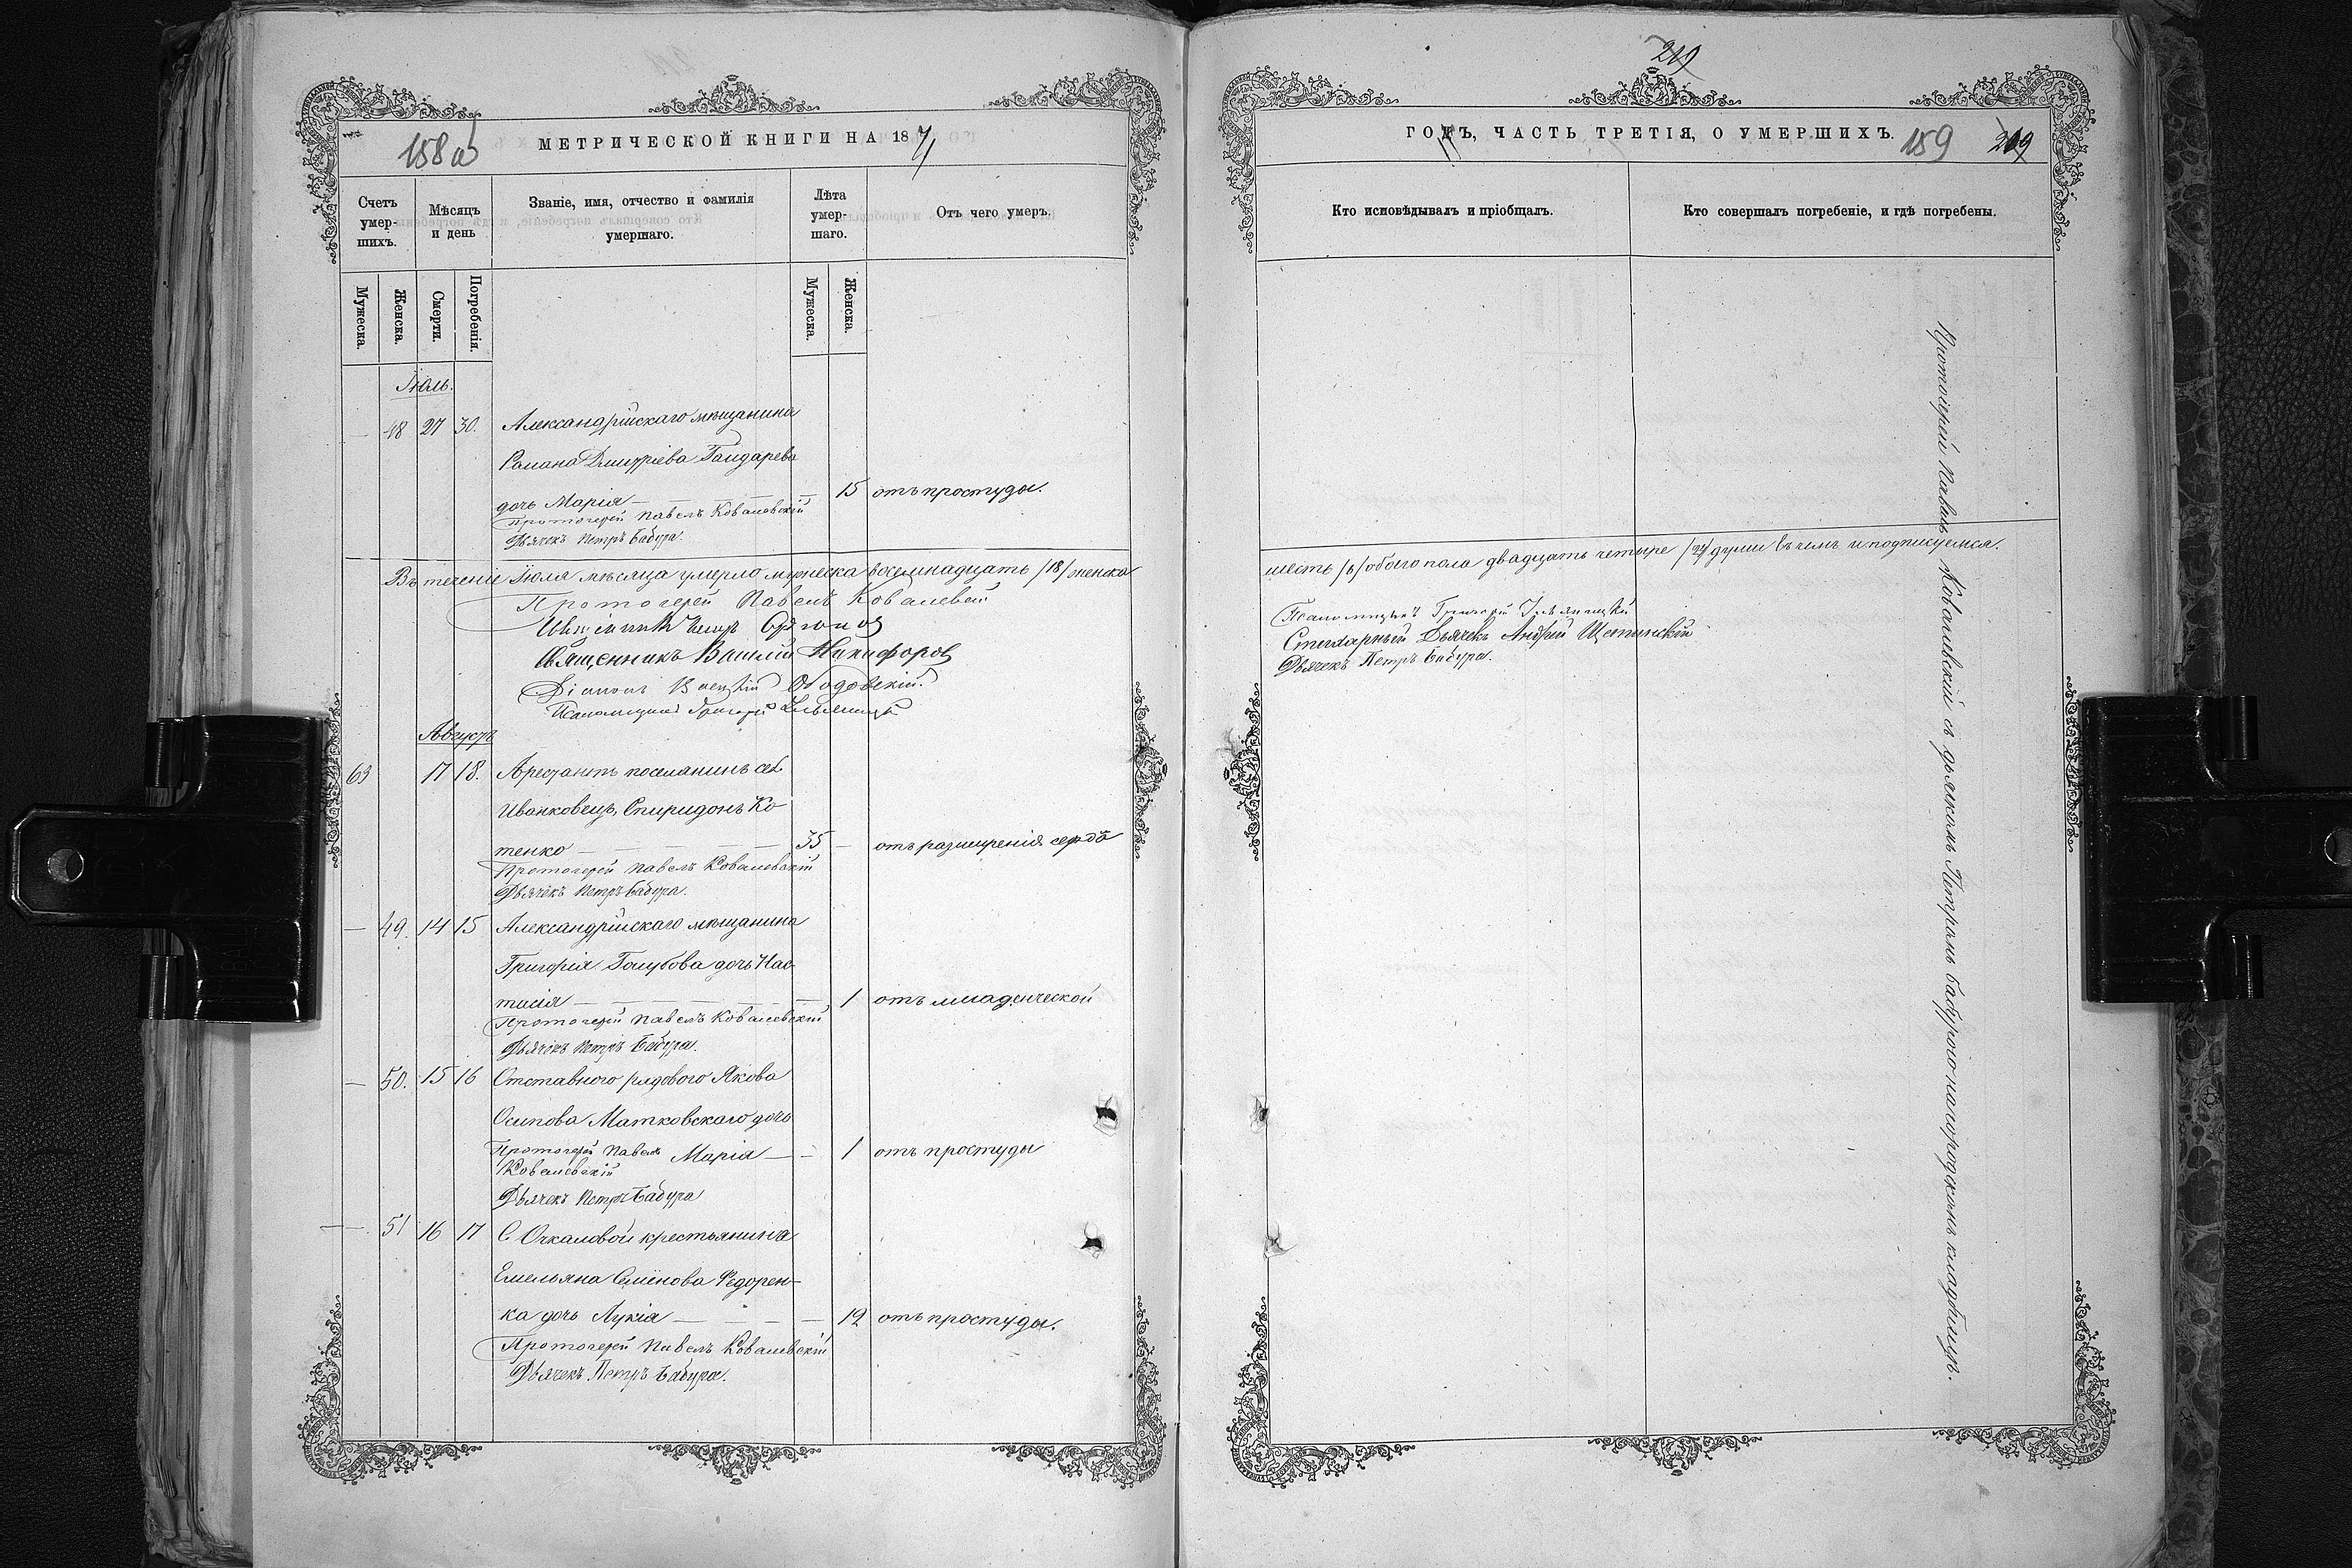 158 а
МЕТРИЧЕСКОЙ КНИГИ НА 1871
Счетъ умер-шихъ.
Мѣсяцъ и день
Званіе, имя, отчество и фамилія умершаго.
Лѣта умер-шаго.
Отъ чего умеръ.
Мужеска.
Женска.
Смерти.
Погребенія.
Мужеска.
Женска.
Іюль.
— 48 27 30. Александрійскаго мѣщанина
Романа Дмитріева Гандарева
дочь Марія — — — — 15 отъ простуды.
Протоіерей Павелъ Ковалевскій
Дьячекъ Петръ Бабура.
Въ теченіе Іюля мѣсяца умерло мужеска восемнадцать /18/ женска
Протоіерей Павелъ Ковалевскій
Священникъ
Священникъ Василій Никифоров
Діаконъ Ободовскій.
Псаломщикъ Григорій
Августъ
63 17 18. Арестантъ поселянинъ сел.
Иванковецъ, Спиридонъ Ко-
тенко — — — — 35 — отъ разширенія сердца
Протоіерей Павелъ Ковалевскій
Дьячекъ Петръ Бабура.
— 49. 14 15 Александрійскаго мѣщанина
Григорія Голубова дочь Нас-
тасія — — — — — 1 отъ младенческой
Протоіерей Павелъ Ковалевскій
Дьячекъ Петръ Бабура.
— 50. 15 16 Отставного рядового Якова
Осипова Матковскаго дочь
Протоіерей Павелъ Марія — - 1 отъ простуды
Ковалевскій
Дьячекъ Петръ Бабура
— 51 16 17 С. Очкаловой крестьянина
Емельяна Семенова Федорен-
ка дочь Лукія — - - - — 12 отъ простуды.
Протоіерей Павелъ Ковалевскій
Дьячекъ Петръ Бабура.
219
ГОДЪ, ЧАСТЬ ТРЕТІЯ, О УМЕРШИХЪ.
159 219
Кто исповѣдывалъ и пріобщалъ.
Кто совершалъ погребеніе, и гдѣ погребены.
шесть /6/ обоего пола двадцать четыре /24/ души въ чемъ и подписуемся.
Псаломщикъ Григорій
Дьячекъ Андрей Щепинскій
Дьячекъ Петръ Бабура.
Протоіерей Павелъ Ковалевскій съ дьячкомъ Петромъ Бабурою на городскомъ кладбищѣ.